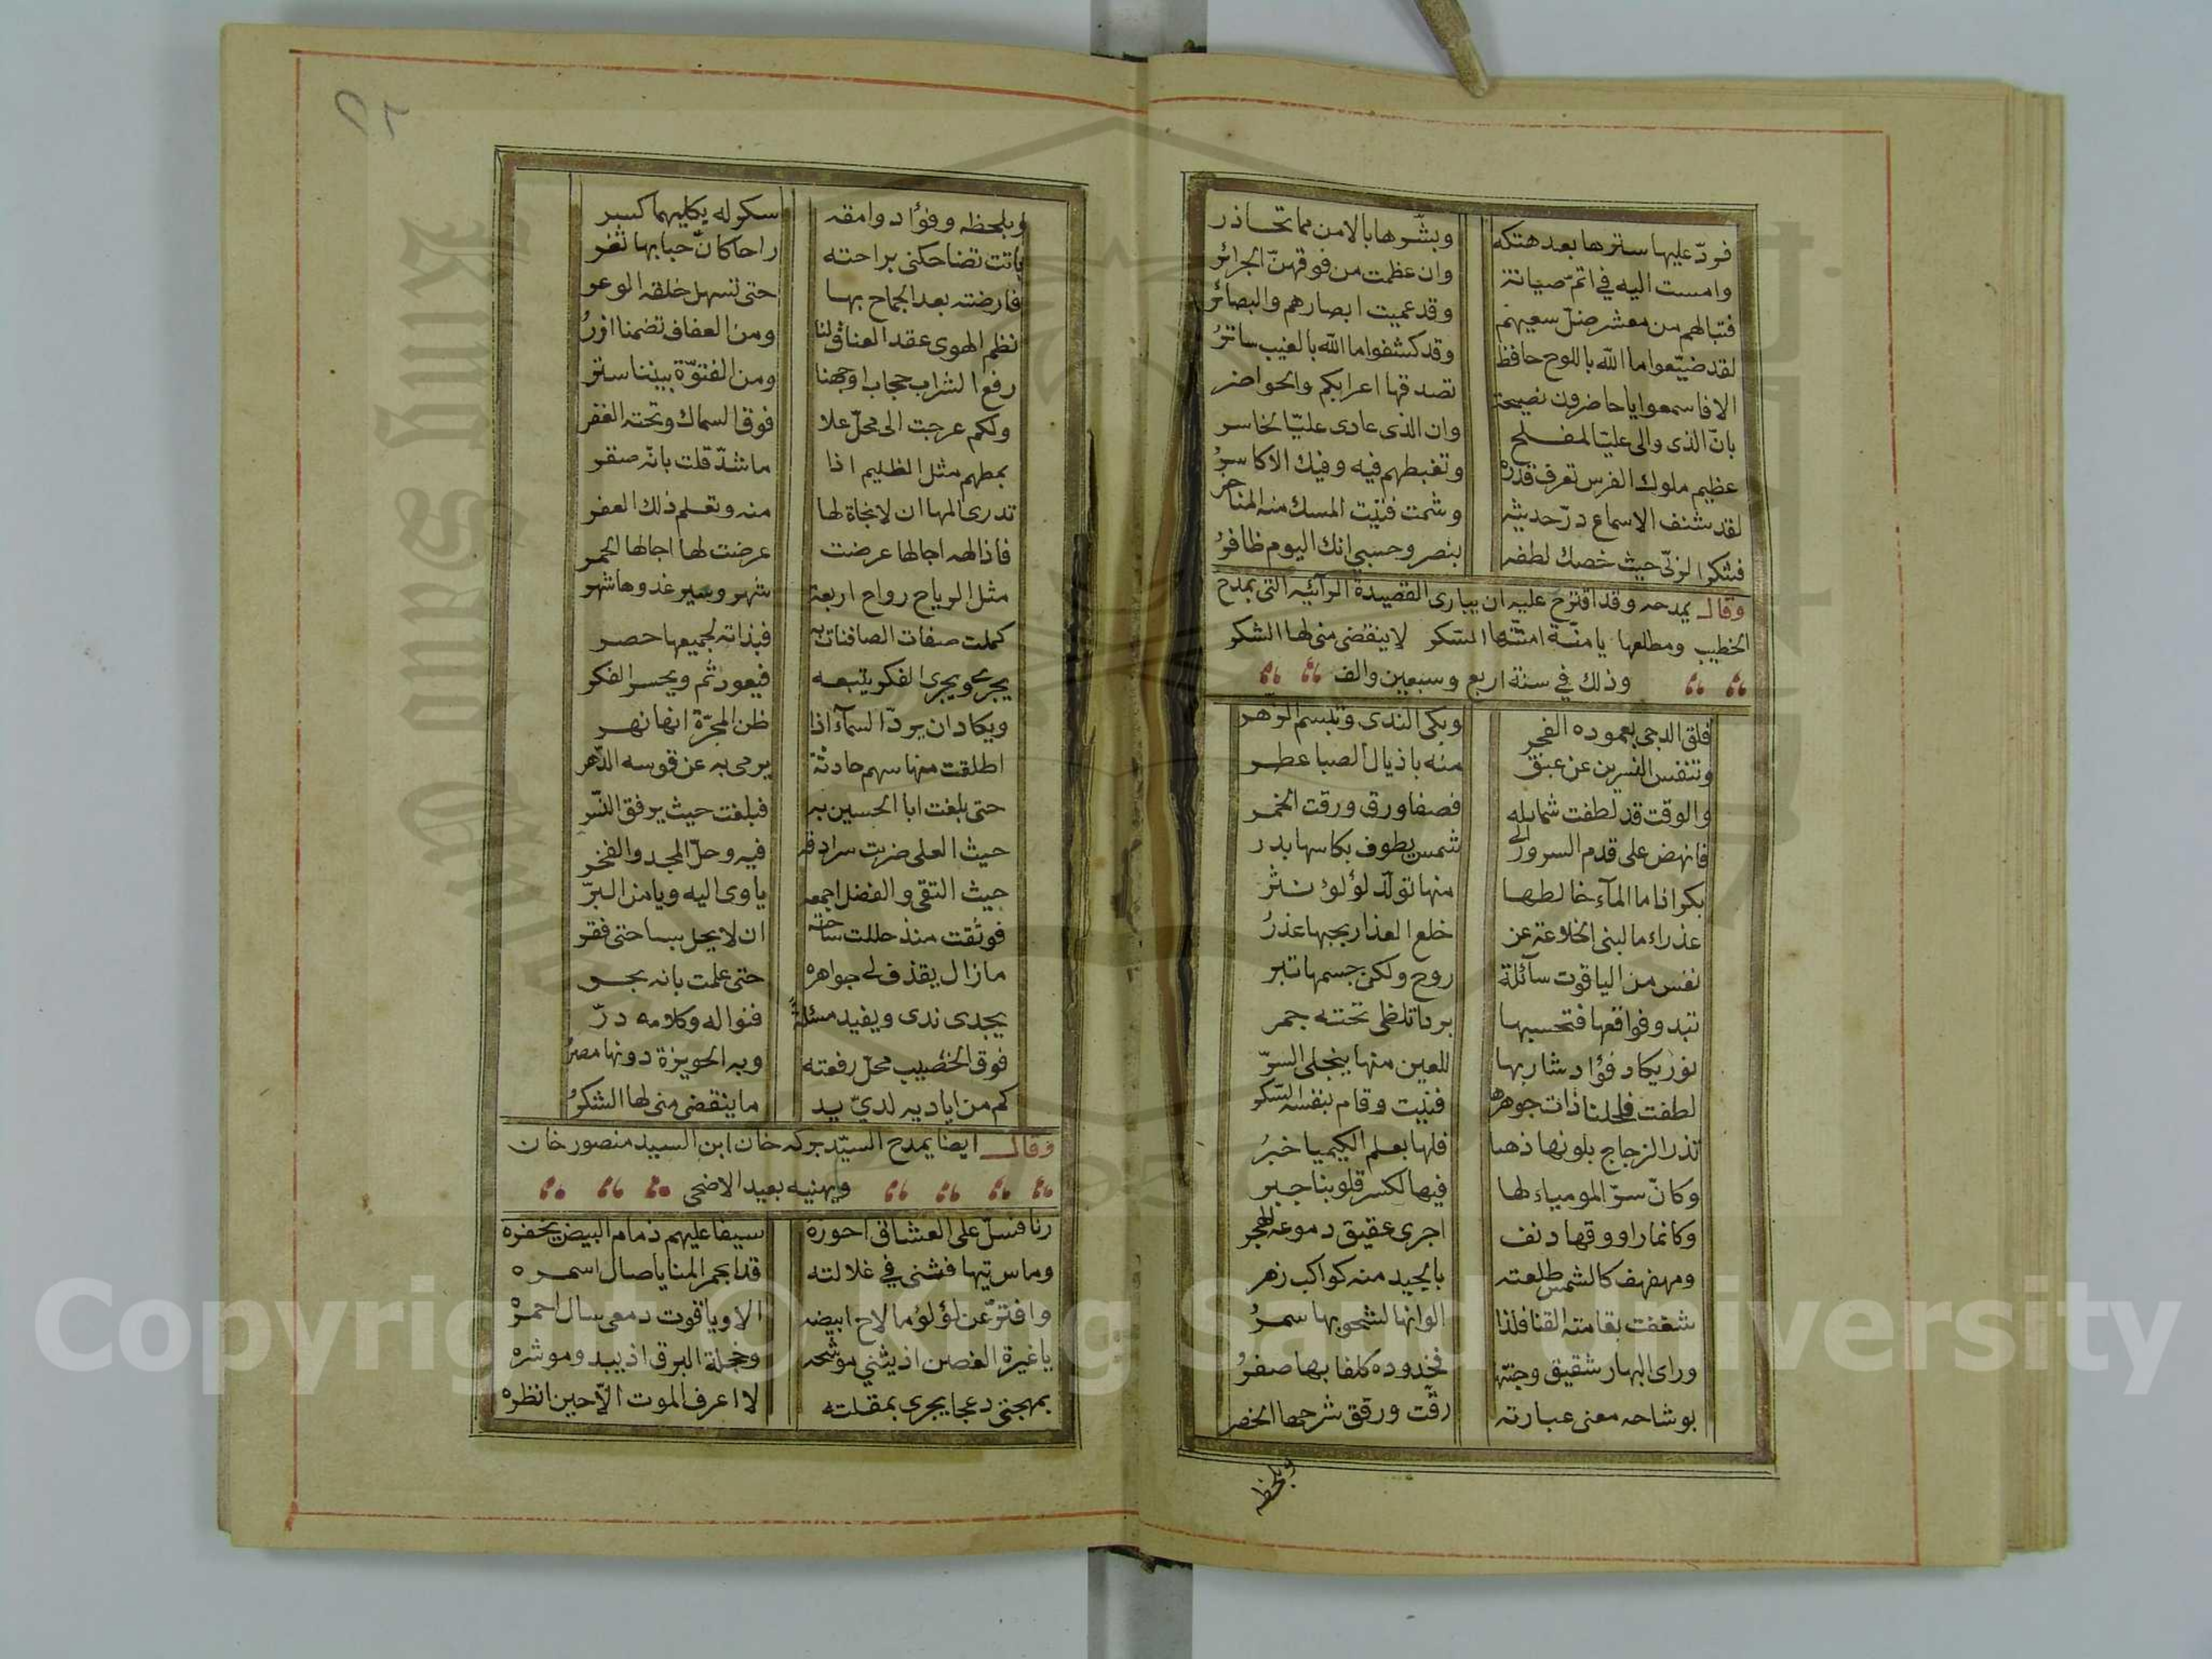 فردّ عليها سترها بعد هتكه وبشّرها بالامن مما تحاذر
وامست اليه في اتمّ صيانة وان عظمت من فوقهنّ الجرائر
فتبالهم من معشر ضلّ سعيهم وقد عميت ابصارهم والبصائر
لقد ضيّعوا ما الله باللوح حافظ وقد كشفوا ما الله بالغيب ساتر
الا فاسمعوا يا حاضرون نصيحة تصدقها اعرابكم والحواضر
بانّ الذى والى عليّا لمفلح وان الذى عادى عليّا الخاسر
عظيم ملوك الفرس تعرف قدره وتغبطهم فيه وفيك الاكاسر
لقد شنف الاسماع درّ حديثه وشمت فتيت المسك منه المناخر
فشكوا لربّى حيث خصك لطفه بنصر وحسبي انك اليوم ظافر
وقال يمدحه وقد اقترح عليه ان يبارى القصيدة الرآئيه التى يمدح
الخطيب ومطلعها يا منّة امتنّها السكر لا ينقضى منى لها الشكر
وذلك في سنة اربع وسبعين والف
فلق الدجى بعموده الفجر وبكى الندى وتبسم الزهر
وتنفس النسرين عن عبق منه باذيال الصبا عطر
والوقت قد لطفت شمايله فصفا ورق ورقت الخمر
فانهض على قدم السرور الى شمس يطوف بكاسها بدر
بكر اذا ما المآء خالطها منها تولّد لؤلؤ نثر
عذراء ما لبنى الخلاعة عن خلع العذار بحبها عذر
نفس من الياقوت سآئلة روح ولكن جسمها تبر
تبدو فواقعها فتحسبها بردا تلظى تحته جمر
نور يكاد فؤاد شاربها للعين منها ينجلى السرّ
لطفت فخلنا ذات جوهرها فنيت وقام بنفسه السكر
تذر الزجاج بلونها ذهبا فلها بعلم الكيميا خبر
وكانّ سرّ المومياء لها فيها لكسر قلوبنا جبر
وكانما راووقها دنف اجرى عقيق دموعه الهجر
ومهفهف كالشمس طلعته بالجيد منه كواكب زهر
شغفت بقامته القنا فلذا الوانها لشحوبها سمر
وراى البهار شقيق وجنته فخدوده كلفا بها صفر
بوشاحه معنى عبارته رقّت ورقق شرحها الخصر
وبلحظه
وبلحظه وفؤاد وامقه سكر له يكليهما كسر
باتت تضاحكنى براحته راحا كانّ حبابها ثغر
فارضته بعد الجماح بها حتى تسهل خلقه الوعر
نظم الهوى عقد العناق لنا ومن العفاف تضمنا ازر
رفع الشراب حجاب اوجهنا ومن الفتوّة بيننا ستر
ولكم عرجت الى محلّ علا فوق السماك وتحته الغفر
بمطهم مثل الظليم اذا ما شدّ قلت بانّه صقر
تدرى المها ان لا نجاة لها منه وتعلم ذلك العفر
فاذا لهم اجالها عرضت عرضت لها اجالها الحمر
مثل الرياح رواح اربعة شهر وسير غدوها شهر
كملت صفات الصافنات به فبذاته لجميعها حصر
يجرى ويجرى الفكر يتبعه فيعود ثم ويحسر الفكر
ويكاد ان يرد السمآء اذا ظن المجرّة انها نهر
اطلقت منها سهم حادثة يرمى به عن قوسه الدّهر
حتى بلغت ابا الحسين به فبلغت حيث يرفق النّسر
حيث العلى ضربت سرادقه فيه وحلّ المجد والفخر
حيث التقى والفضل اجمعه ياوى اليه ويامن البرّ
فوثقت منذ حللت ساحته ان لا يحل بساحتى فقر
ما زال يقذف لى جواهره حتى علمت بانه بحر
يجدى ندى ويفيد مسئلة فنواله وكلامه درّ
فوق الخصيب محلّ رفعته وبه الحويزة دونها مصر
كم من اياديه لديّ يد ما ينقضى منى لها الشكر
وقال ايضا يمدح السيّد بركه خان ابن السيد منصور خان
ويهنيه بعيد الاضحى
رنا فسلّ على العشاق احوره سيفا عليهم ذمام البيض يخفره
وماس تيها فثنى في غلالته قدا بحمر المنايا صال اسمره
وافترّ عن لؤلؤ ما لاح ابيضه الا وياقوت دمعى سال احمره
يا غيرة الغصن اذ يثنى موشحه وخجلة البرق اذ يبدو موشره
بمهجتى دعجا يجرى بمقلته لا اعرف الموت الاّ حين انظره